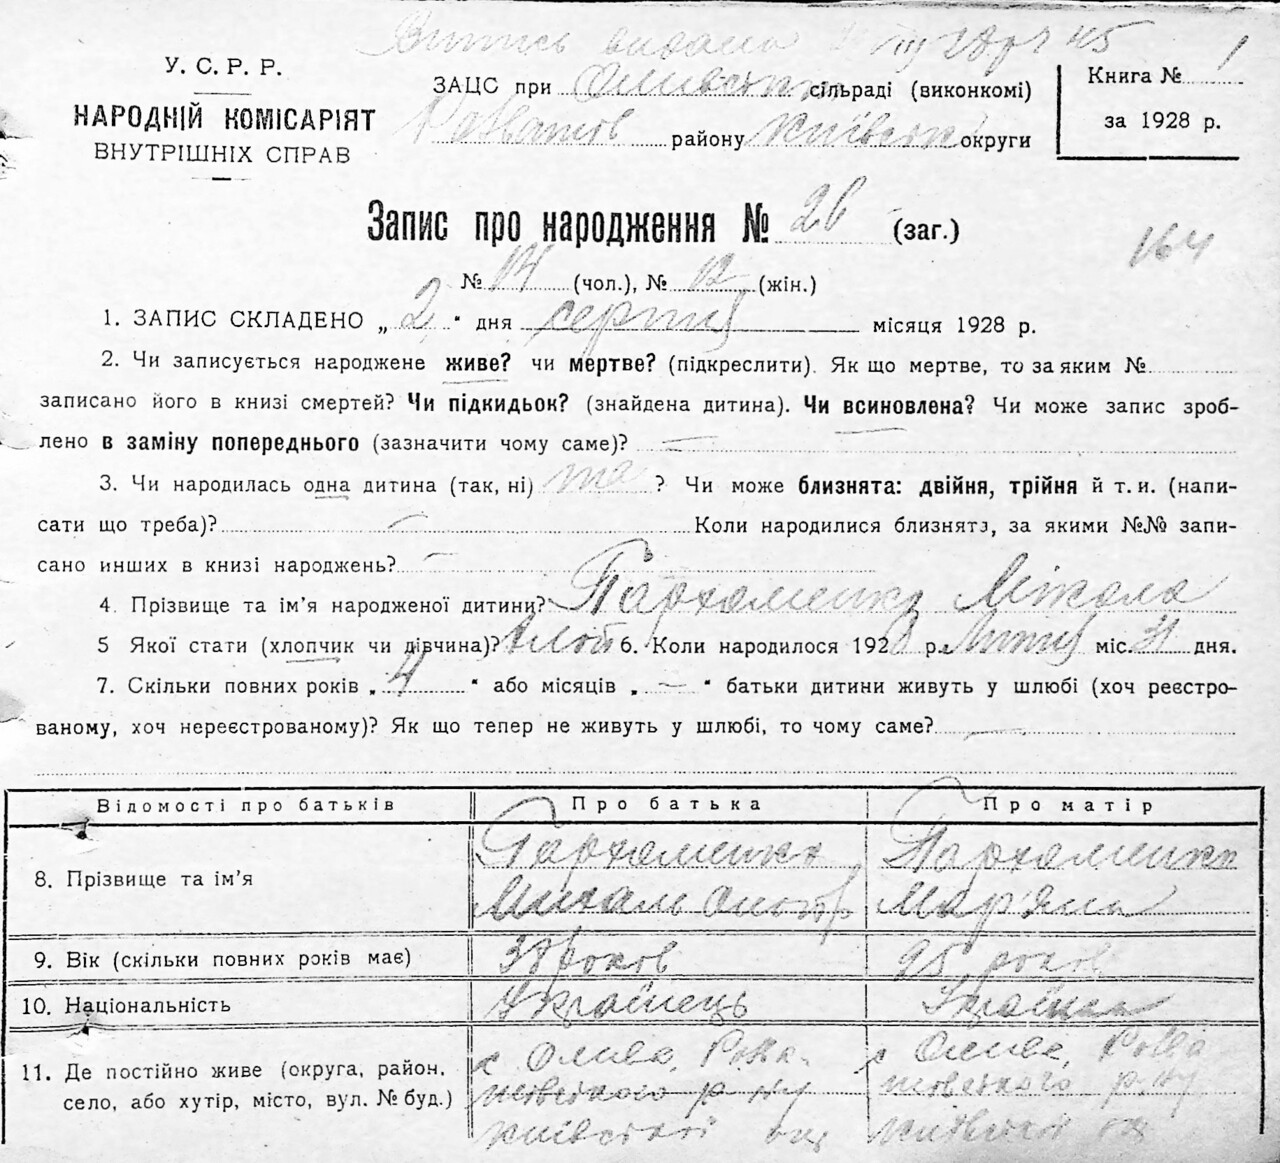 Випись видана
У. С. Р. Р.
НАРОДНІЙ КОМІСАРІЯТ
ВНУТРІШНІХ СПРАВ
ЗАЦС при сільраді (виконкомі)
району Київськ округи
Книга № 1
за 1928 р.
Запис про народження № 26 (заг.)
164
№ 14 (чол.), № 12 (жін.)
1. ЗАПИС СКЛАДЕНО „ 2 " дня серпня місяця 1928 р.
2. Чи записується народжене живе? чи мертве? (підкреслити). Як що мертве, то за яким №
записано його в книзі смертей? Чи підкидьок? (знайдена дитина). Чи всиновлена? Чи може запис зроб-
лено в заміну попереднього (зазначити чому саме)? —
3. Чи народилась одна дитина (так, ні) так ? Чи може близнята: двійня, трійня й т. и. (напи-
сати що треба)? — Коли народилися близнята, за якими №№ запи-
сано инших в книзі народжень? —
4. Прізвище та ім'я народженої дитини? Пархоменко Мікола
5 Якої стати (хлопчик чи дівчина)? 6. Коли народилося 1928 р. Липня міс. 31 дня.
7. Скільки повних років „ 4 " або місяців „ — " батьки дитини живуть у шлюбі (хоч реєстро-
ваному, хоч нереєстрованому)? Як що тепер не живуть у шлюбі, то чому саме? —
Відомості про батьків Про батька Про матір
8. Прізвище та ім'я Пархоменко Пархоменко
Михаль Мар'яна
9. Вік (скільки повних років має) 38 років 25 років
10. Національність Українець Українка
11. Де постійно живе (округа, район, с Олива, Розва- с Олива, Розва
село, або хутір, місто, вул. № буд.) жівського р-ну жівського р-ну
Київської окр Київської окр